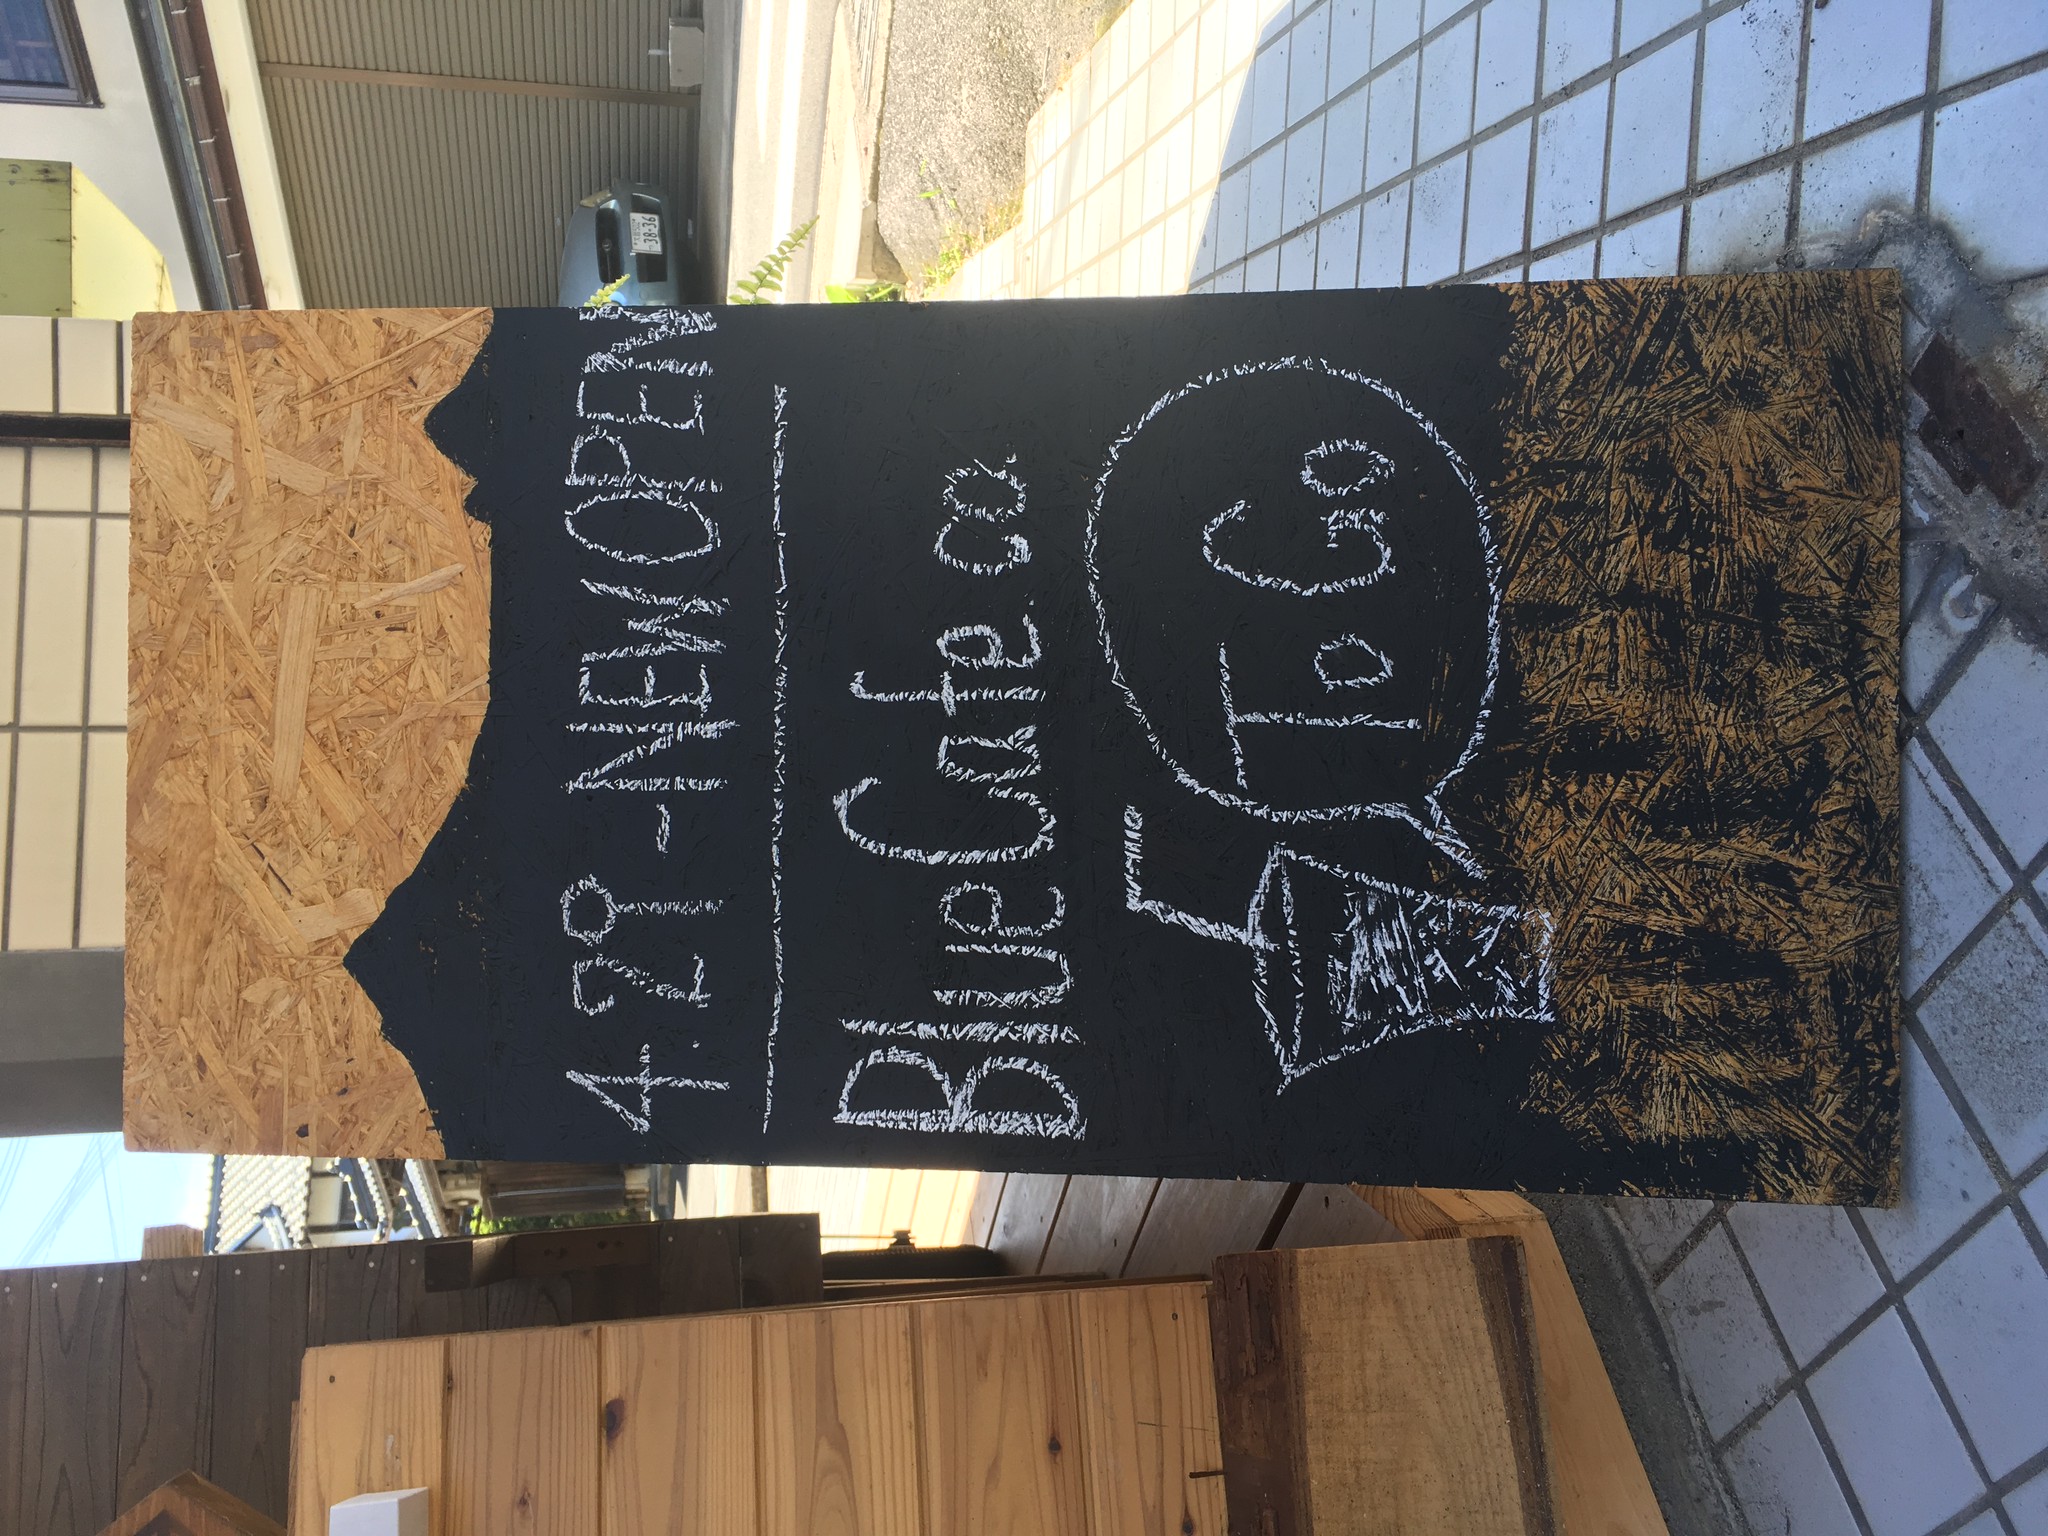 4.29-NEWOPEN
Blue Cafe co.
To Go
38-36